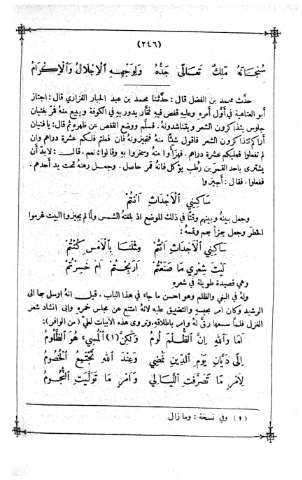 (٢٤٦)
سُبْحَانَهُ مَلِكٌ تَعَالَى جَدُّهُ وَلِوَجْهِهِ الْإِجْلَالُ وَالْإِكْرَامُ
حدّث محمد بن الفضل قال: حدّثنا محمد بن عبد الجبار الفزاري قال: اجتاز
ابو العتاهية في أول أمره وعلى ظهره قفص فيه فخّار يدور به في الكوفة ويبيع منه فمرّ بفتيان
جلوس يتذاكرون الشعر ويتناشدونه. فسلّم ووضع القفص عن ظهره ثم قال: يا فتيان
أراكم تذاكرون الشعر فأقول شيئًا منه فتجيزونه فان فعلتم فلكم عشرة دراهم وان
لم تفعلوا فعليكم عشرة دراهم. فهزأوا منه وسخروا به وقالوا: نعم. قالت: لا بدّ أن
يشترى بأحد القمرين رطب يؤكل فانه قمر حاصل. وجعل رهنه تحت يد أحدهم.
ففعلوا. فقال: أجيزوا
سَاكِنِي الْأَجْدَاثِ أَنْتُمْ
وجعل بينه وبينهم وقتًا في ذلك الموضع اذا بلغته الشمس ولم يجيزوا البيت غرموا
الخطر وجعل يهزأ بهم وتممه:
سَاكِنِي الْأَجْدَاثِ أَنْتُمْ مِثْلَنَا بِالْأَمْسِ كُنْتُمْ
لَيْتَ شِعْرِي مَا صَنَعْتُمْ أَرَبِحْتُمْ أَمْ خَسِرْتُمْ
وهي قصيدة طويلة في شعره
وله في البغي والظلم وهو احسن ما جاء في هذا الباب. قيل انه أرسل بها الى
الرشيد وكان امر بحبسه والتضييق عليه لأنه امتنع عن مجلس خمره وأبى انشاد شعر
الغزل فلما سمعها رقّ له وأمر باطلاقه. وتروى هذه الأبيات لعليّ (من الوافر):
أَمَا وَاللهِ إِنَّ الظُّلْمَ لُومُ وَلَكِنَّ (١) الْمُسِيءَ هُوَ الظَّلُومُ
إِلَى دَيَّانِ يَوْمِ الدِّينِ نَمْضِي وَعِنْدَ اللهِ تَجْتَمِعُ الْخُصُومُ
لِأَمْرٍ مَا تَصَرَّفَتِ اللَّيَالِي وَأَمْرٍ مَا تُوُلِّيَتِ النُّجُومُ
(١) وفي نسخة: وما زال